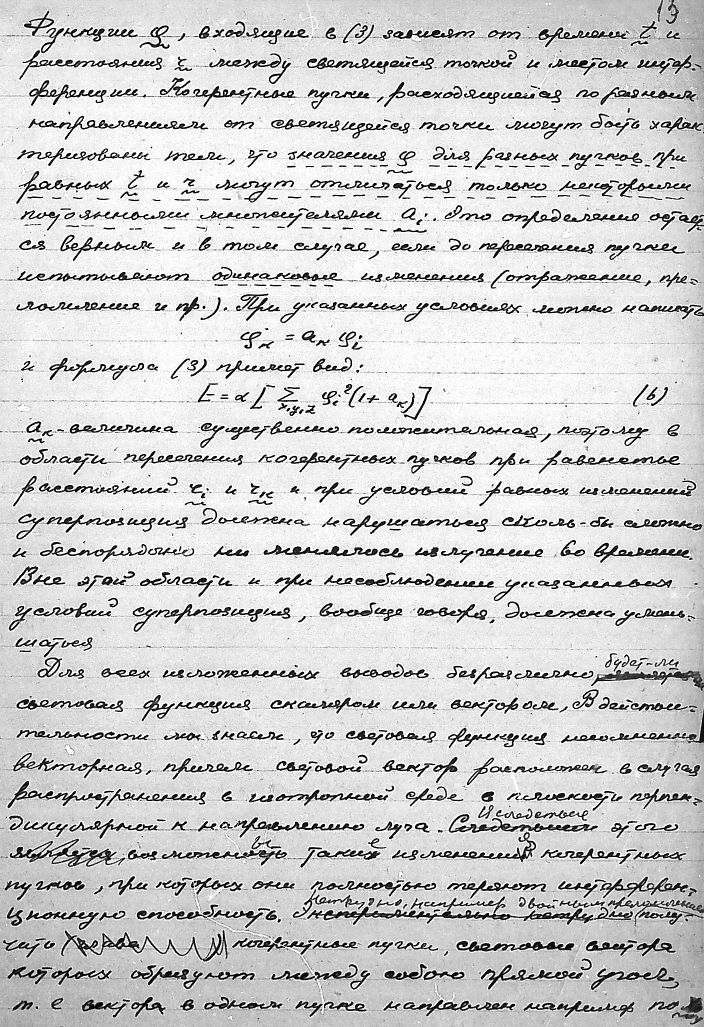 13
Функции φ, входящие в (3) зависят от времени t и
расстояния r между светящейся точкой и местом интер-
ференции. Когерентные пучки, расходящиеся по разным
направлениям от светящейся точки могут быть харак-
теризованы тем, что значения φ для разных пучков при
равных t и r могут отличаться только некоторыми
постоянными множителями ai. Это определение остает-
ся верным и в том случае, если до пересечения пучки
испытывают одинаковые изменения (отражение, пре-
ломление и пр.). При указанных условиях можно написать
φк = aк φi
и формула (3) примет вид:
E = α [ Σ x,y,z φi² (1 + aк) ] (6)
aк - величина существенно положительная, поэтому в
области пересечения когерентных пучков при равенстве
расстояний ri и rк и при условии равных изменений
суперпозиция должна нарушаться сколь-бы сложно
и беспорядочно ни менялось излучение во времени.
Вне этой области и при несоблюдении указанных
условий суперпозиция, вообще говоря, должна умень-
шаться
Для всех изложенных выводов безразлично, будет-ли
световая функция скаляром или вектором. В действи-
тельности мы знаем, что световая функция несомненно
векторная, причем световой вектор расположен в случае
распространения в изотропной среде в плоскости перпен-
дикулярной к направлению луча. Вследствие этого
возможны такие изменения когерентных
пучков, при которых они полностью теряют интерферен-
ционную способность. Нетрудно, например двойным преломлением полу-
чить когерентные пучки, световые вектора
которых образуют между собою прямой угол,
т. е вектора в одном пучке направлен например по